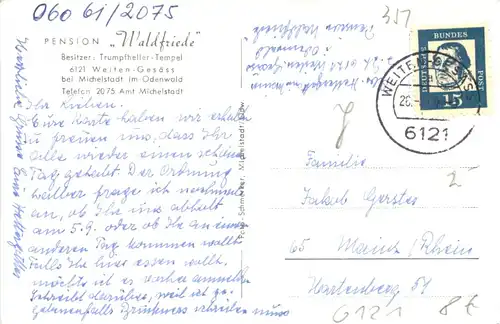 06061/2075
PENSION „Waldfriede"
Besitzer: Trumpfheller-Tempel
6121 Weiten-Gesäss
bei Michelstadt im Odenwald
Telefon 2075 Amt Michelstadt
Ihr Lieben.
Eure Karte haben wir erhalten
u freuen uns, dass Ihr
alle wieder einen schönen
Tag gehabt. Der Ordnung
weiber frage ich nochmal
an, ob Ihr uns abholt
am 5.9. oder ob Ihr an einem
anderen Tag kommen wollt
Falls Ihr hier essen wollt,
möchte ich es vorher anmelden
Schreibt darüber, weil ich
Herzliche Grüsse Eure
Pension Waldfriede
351
DEUTSCHE BUNDESPOST
15
WEITEN-GESÄSS
6121
Familie
Jakob Gerster
65 Mainz/Rhein
Hartenberg 51
6121